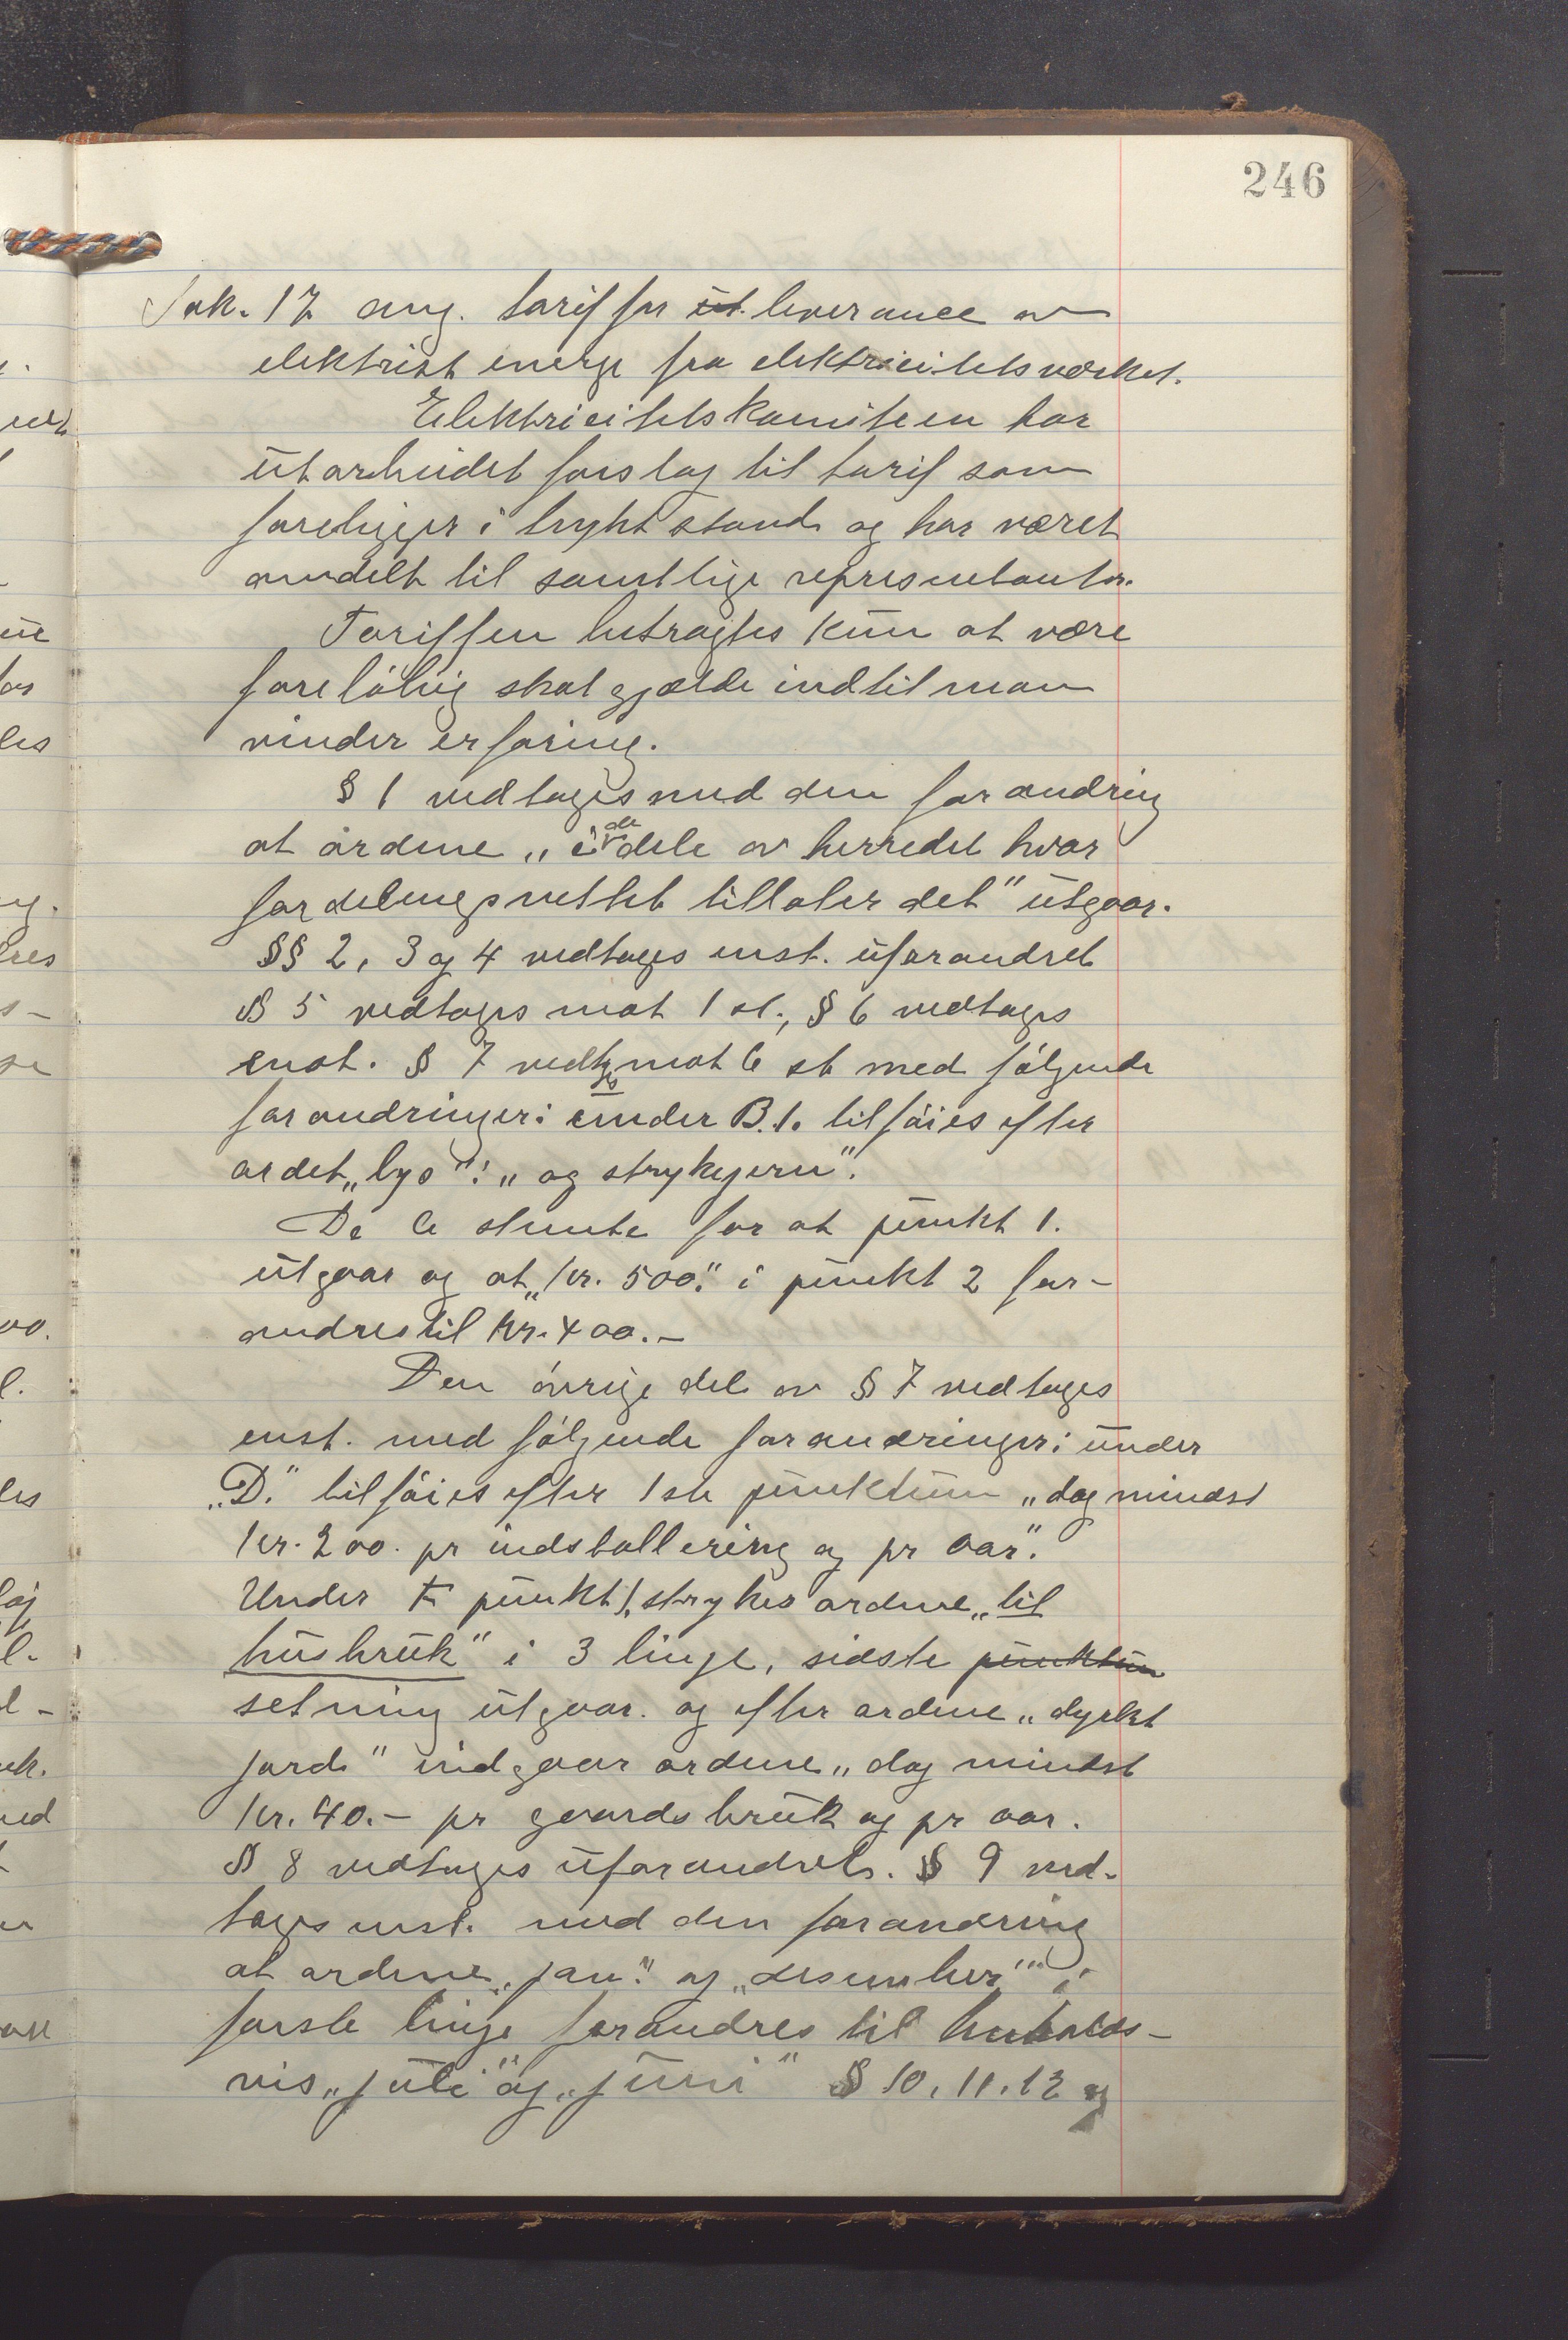 246
Sak. 17 ang. tarif for ut. leverance av
elektrisk energi fra elektricitetsværket.
Elektricitetskomiteen har
utarbeidet forslag til tarif som
foreligger i trykt stand og har været
omdelt til samtlige representanter.
Tariffen betragtes kun at være
foreløbig skal gjælde indtil man
vinder erfaring.
§ 1 vedtages med den forandring
at ordene „i de dele av herredet hvor
fordelingsnettet tillater det" utgaar.
§§ 2, 3 og 4 vedtages enst. uforandret
§ 5 vedtages mot 1 st., § 6 vedtages
enst. § 7 vedtages mot 6 st med følgende
forandringer: under B.1. tilføies efter
ordet „lys": „og strykejern".
De 6 stemte for at punkt 1.
utgaar og at „kr. 500." i punkt 2 for-
andres til kr. 400.-
Den øvrige del av § 7 vedtages
enst. med følgende forandringer: under
„D." tilføies efter 1ste punktum „dog mindst
kr. 200. pr indstallering og pr aar".
Under F punkt 1, strykes ordene „til
husbruk" i 3 linje, sidste punktum
setning utgaar. og efter ordene „dyrket
jord" indgaar ordene „dog mindst
kr. 40.- pr gaardsbruk og pr aar.
§ 8 vedtages uforandret. § 9 ved-
tages enst. med den forandring
at ordene „jan." og „desember" i
første linje forandres til henholds-
vis „juli" og „juni" § 10, 11, 12 og